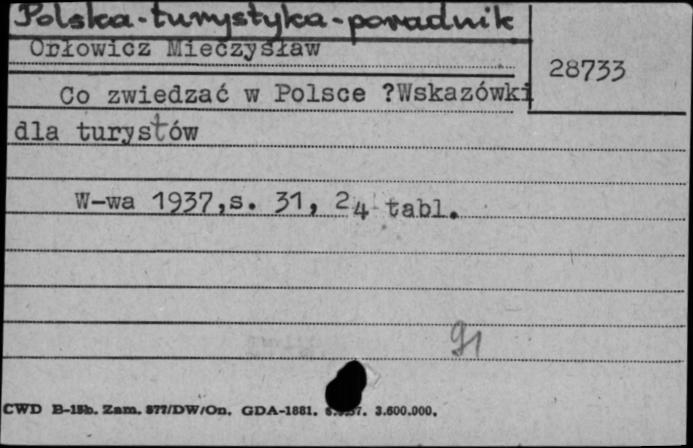 Polska-turystyka-poradnik
Orłowicz Mieczysław
28733
Co zwiedzać w Polsce ?Wskazówki
dla turystów
W-wa 1937,s. 31, 24 tabl.
91
CWD B-15b. Zam. 877/DW/On. GDA-1881. 3.600.000.